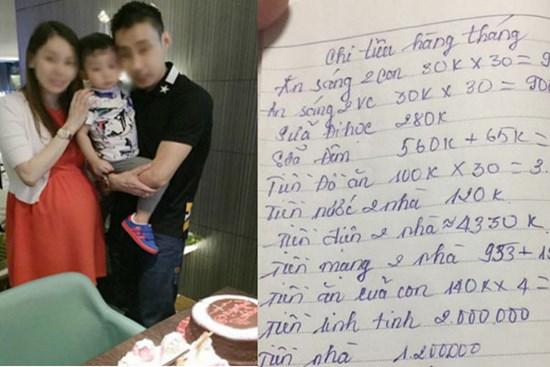 Chi tiêu hàng tháng
Ăn sáng 2 con 30K x 30 = 9
Ăn sáng 2 vc 30K x 30 = 900
Sữa Đi học 280K
Sữa Đêm 560K + 65K =
Tiền Đồ ăn 100K x 30 = 3.
Tiền nước 2 nhà 120K
Tiền điện 2 nhà ≈ 4350K
Tiền mạng 2 nhà 933 + 1
Tiền ăn của con 140K x 4 =
Tiền linh tinh 2.000.000
Tiền nhà 1.200.000